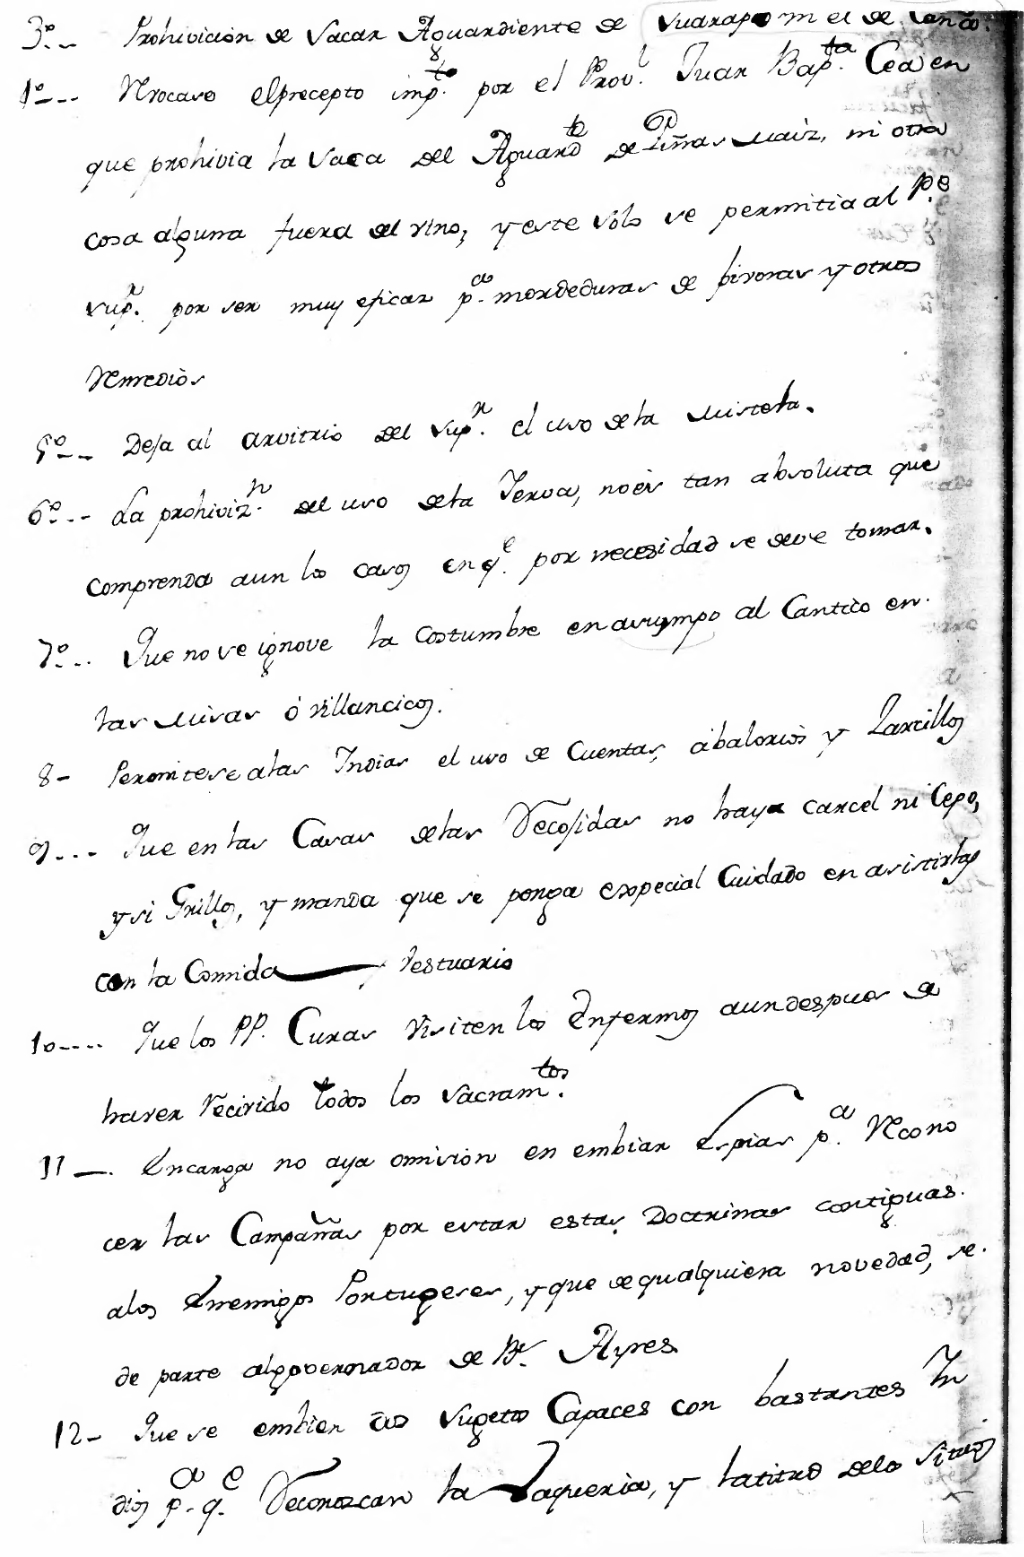 3º-- Prohivicion de Sacar Aguardiente de Guarapo m el de Caña.
1º--- Revocase el precepto imp.to por el Prov.l Juan Bap.ta Cea en
que prohivia la Saca del Aguard.te de Piñas Maiz, ni otra
cosa alguna fuera del vino; y este solo se permitia al P.e
Sup.r por ser muy eficaz p.a mordeduras de bivoras y otros
Remedios
5º-- Deja al arvitrio del Sup.r el uso de la Mistela.
6º--- La prohiviz.n del uso dela Yerva, no es tan absoluta que
comprenda aun los casos en q.e por necesidad se deve tomar.
7º--- Que no se ignove la Costumbre en al Cantico en
las Misas ó Villancicos.
8- Permitese alas Indias el uso de Cuentas, abalorios y Zarcillos
9--- Que en las Casas delas Recojidas no haya carcel ni Cepo,
y si Grillos, y manda que se ponga expecial Cuidado en asistirlas
con la Comida y Vestuario
10---- Que los PP. Curas Visiten los Enfermos aun despues de
haver Recivido todos los Sacram.tos
11 -- Encarga no aya omision en embiar Espias p.a Recono
cer las Campañas por estar estas Doctrinas contiguas
alos Enemigos Portugeses, y que de qualquiera novedad, se
de parte al governador de B.s Ayres
12- Que se embien Sugetos Capaces con bastantes In
dios p.a q.e Reconozcan la Baqueria, y latitud delos Sitios